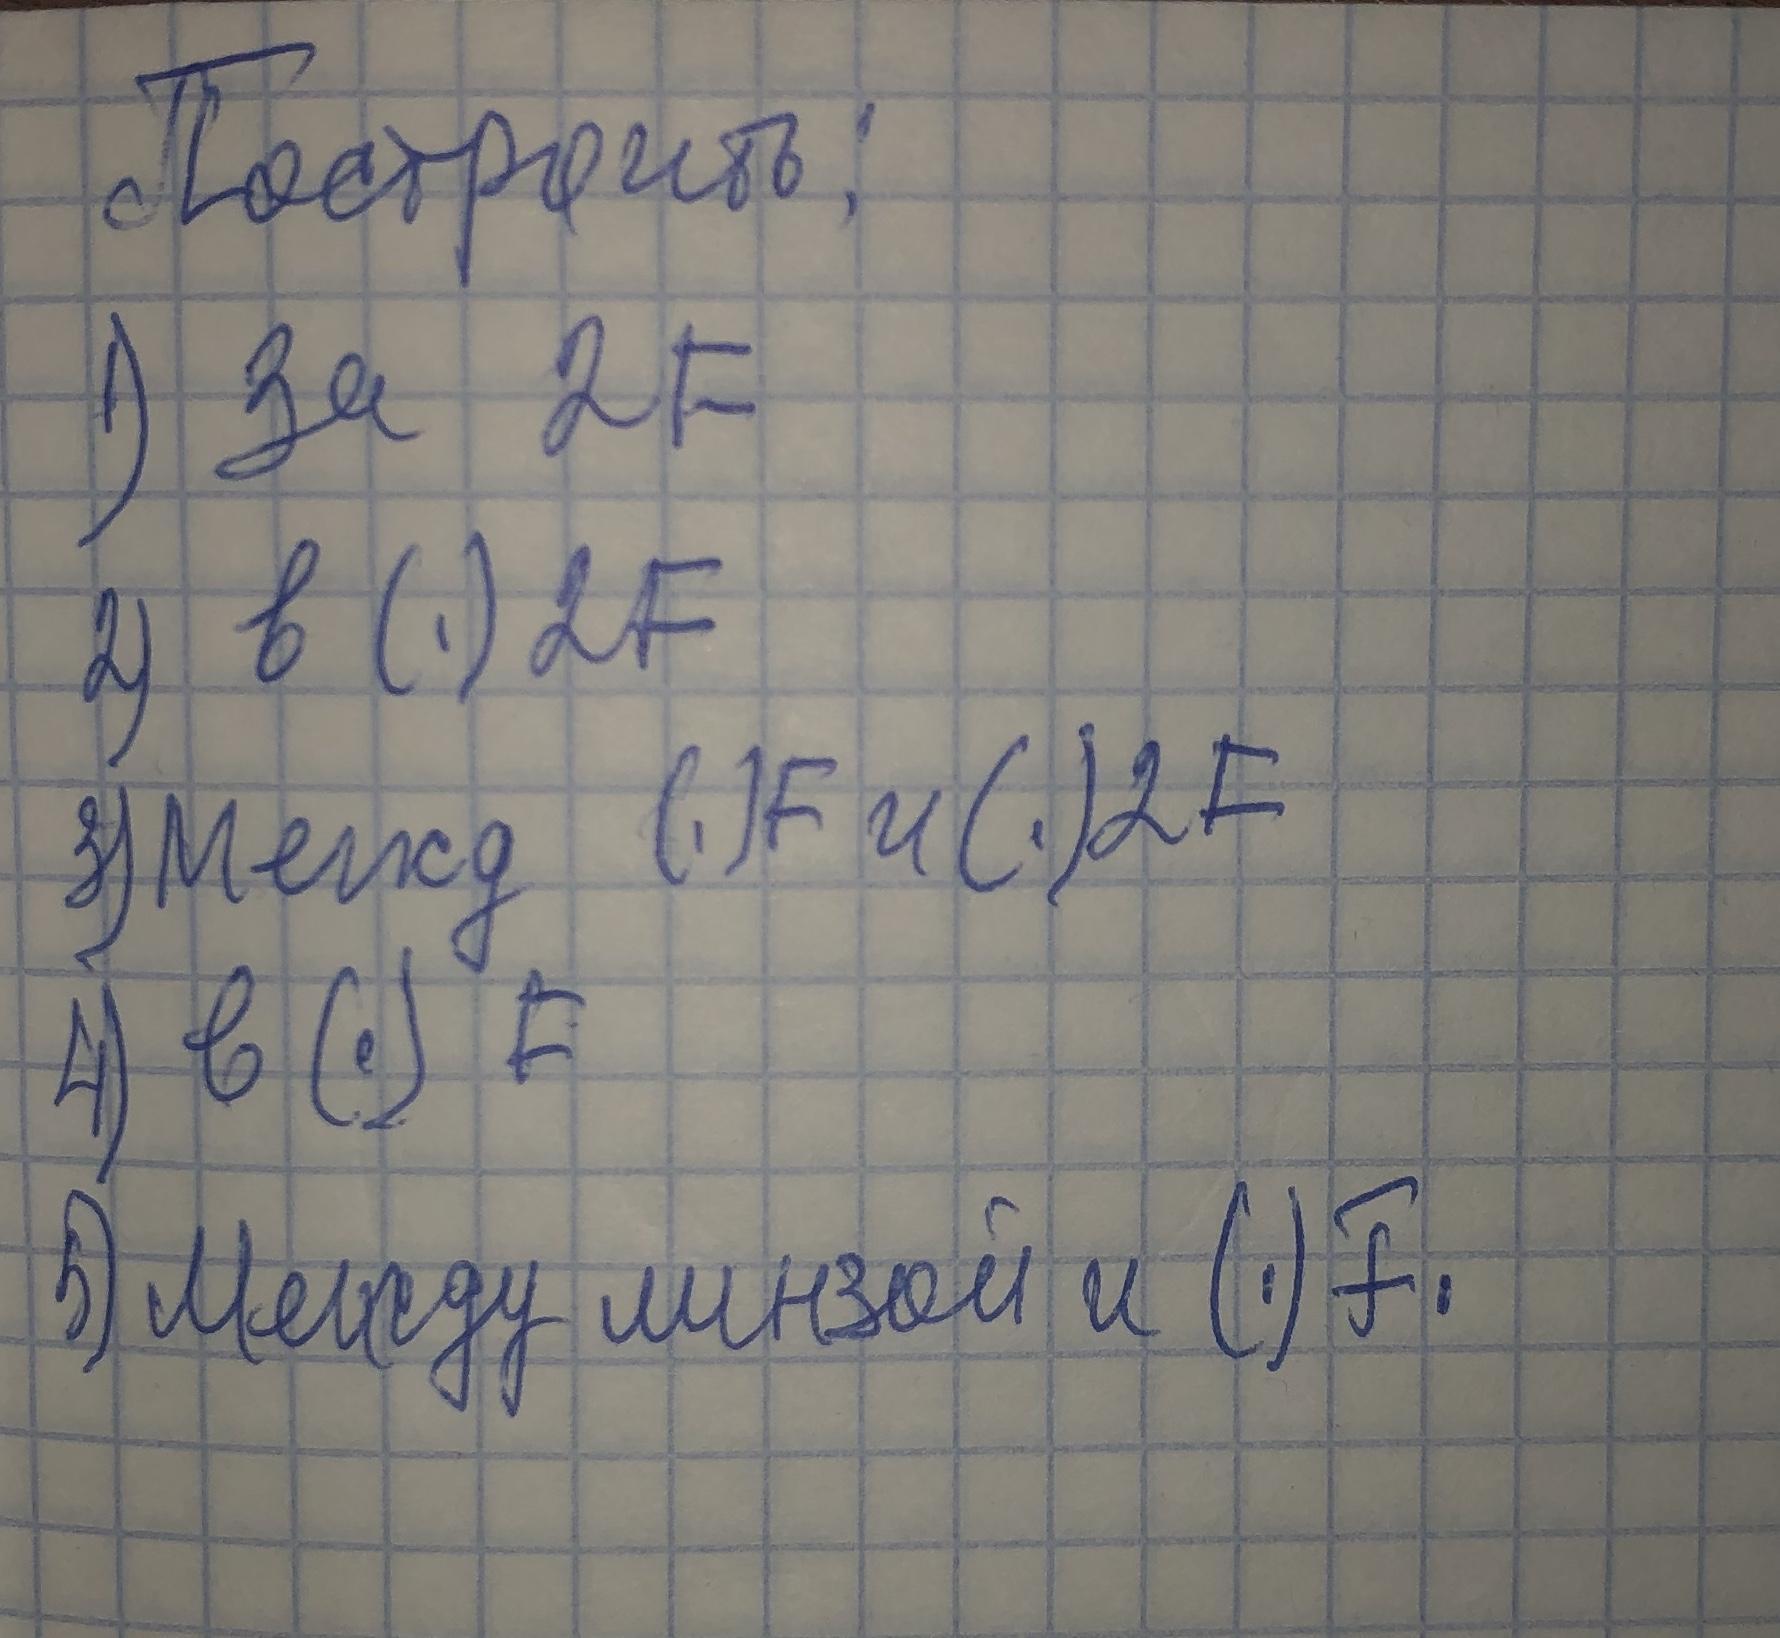 Построить:
1) За 2F
2) в (.) 2F
3) Межд (.) F и (.) 2F
4) в (.) F
5) Между линзой и (.) F.